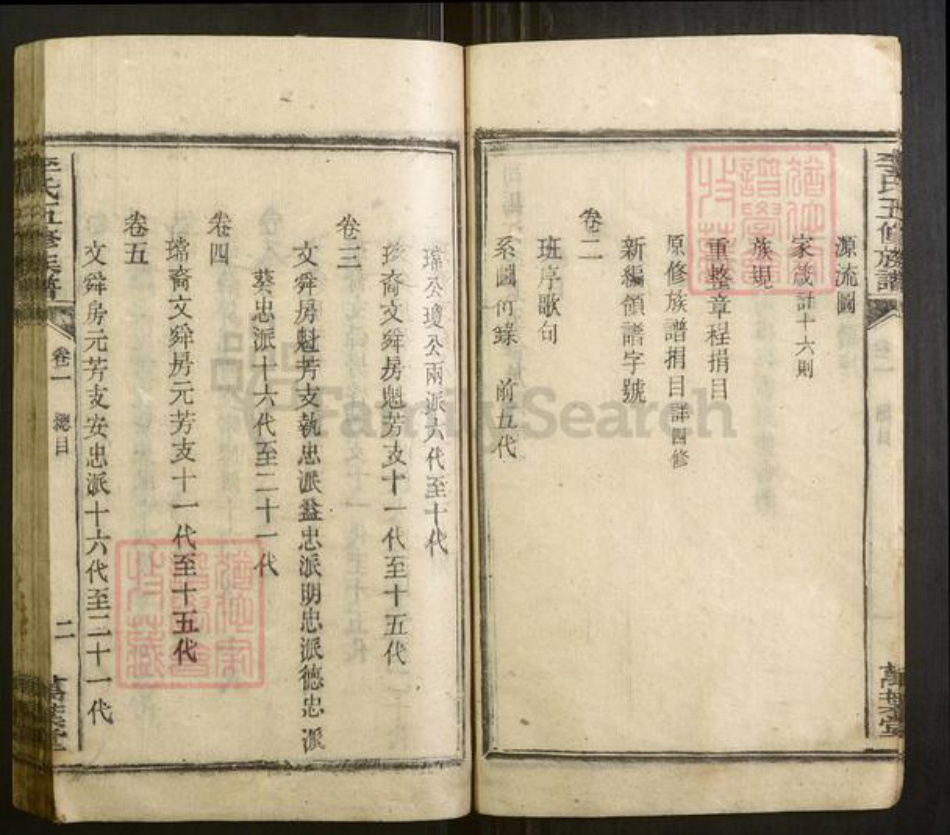 李氏五修族譜
萬葉堂
源流圖
家箴計十六則
族規
重整章程捐目
原修族譜捐目詳四修
新編領譜字號
卷二
班序歌句
系圖何錄 前五代
瑞公瓊公兩派六代至十代
裔文舜房魁芳支十一代至十五代
卷三
文舜房魁芳支執忠派益忠派明忠派德忠派
葵忠派十六代至二十一代
卷四
裔文舜房元芳支十一代至十五代
卷五
文舜房元芳支安忠派十六代至二十一代
李氏五修族譜
卷一
總目
二
萬葉堂
FamilySearch